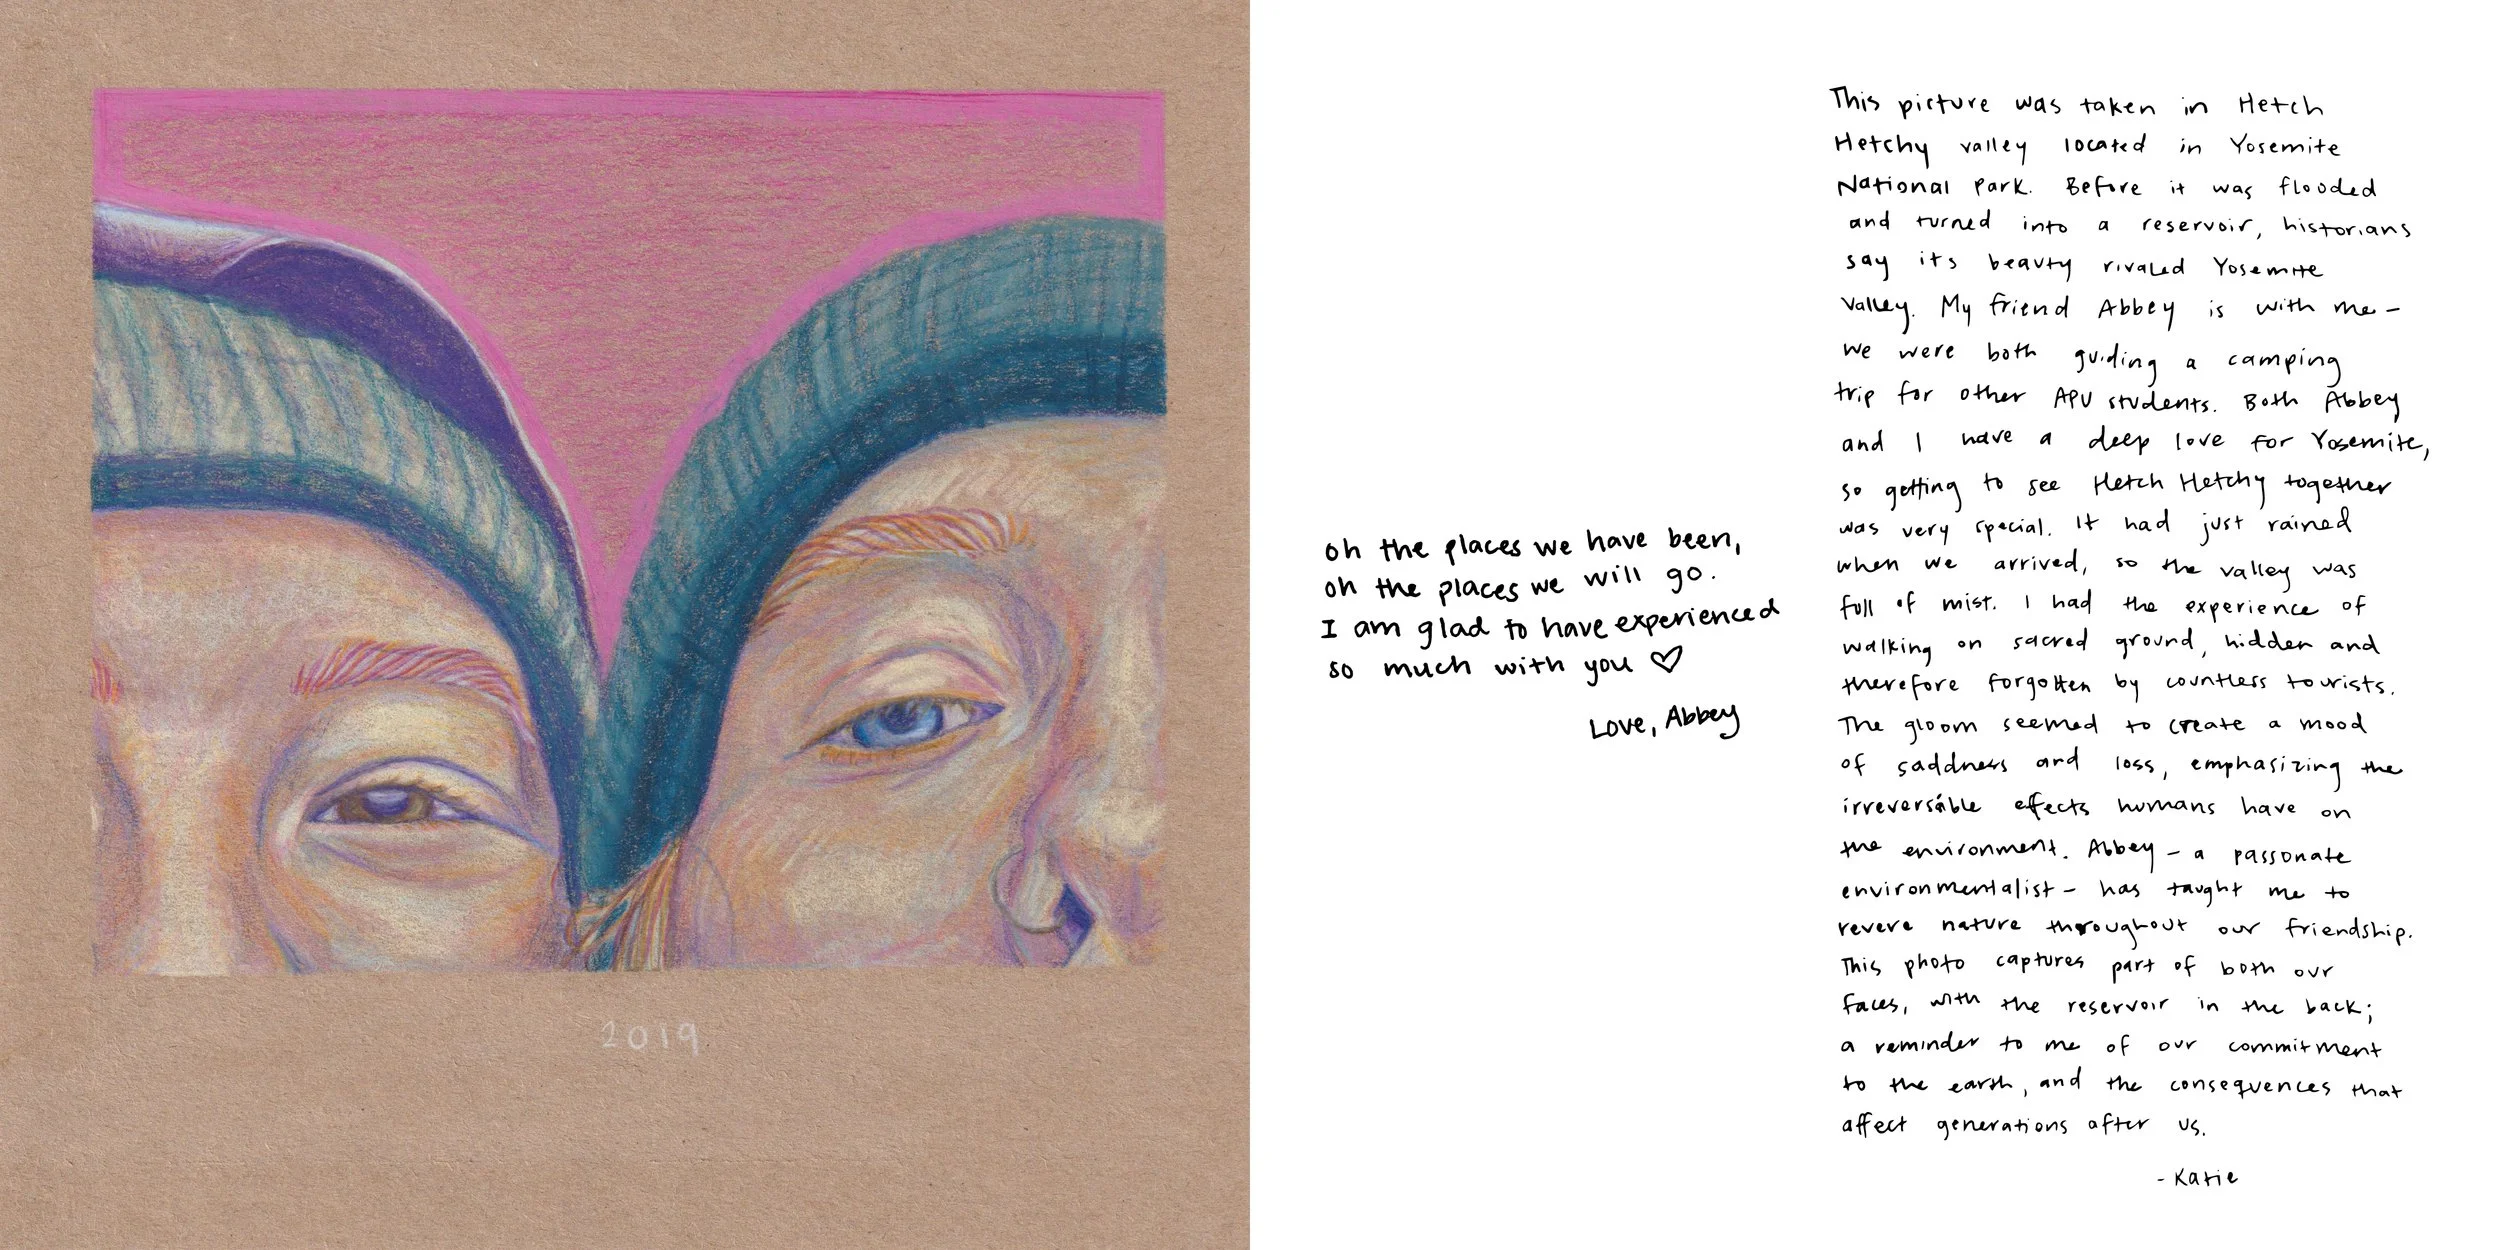 2019
oh the places we have been,
oh the places we will go.
I am glad to have experienced
so much with you ♡
Love, Abbey
This picture was taken in Hetch
Hetchy valley located in Yosemite
National Park. Before it was flooded
and turned into a reservoir, historians
say its beauty rivaled Yosemite
Valley. My friend Abbey is with me -
we were both guiding a camping
trip for other APU students. Both Abbey
and I have a deep love for Yosemite,
so getting to see Hetch Hetchy together
was very special. It had just rained
when we arrived, so the valley was
full of mist. I had the experience of
walking on sacred ground, hidden and
therefore forgotten by countless tourists.
The gloom seemed to create a mood
of saddness and loss, emphasizing the
irreversible effects humans have on
the environment. Abbey - a passonate
environmentalist - has taught me to
revere nature throughout our friendship.
This photo captures part of both our
faces, with the reservoir in the back;
a reminder to me of our commitment
to the earth, and the consequences that
affect generations after us.
- Katie